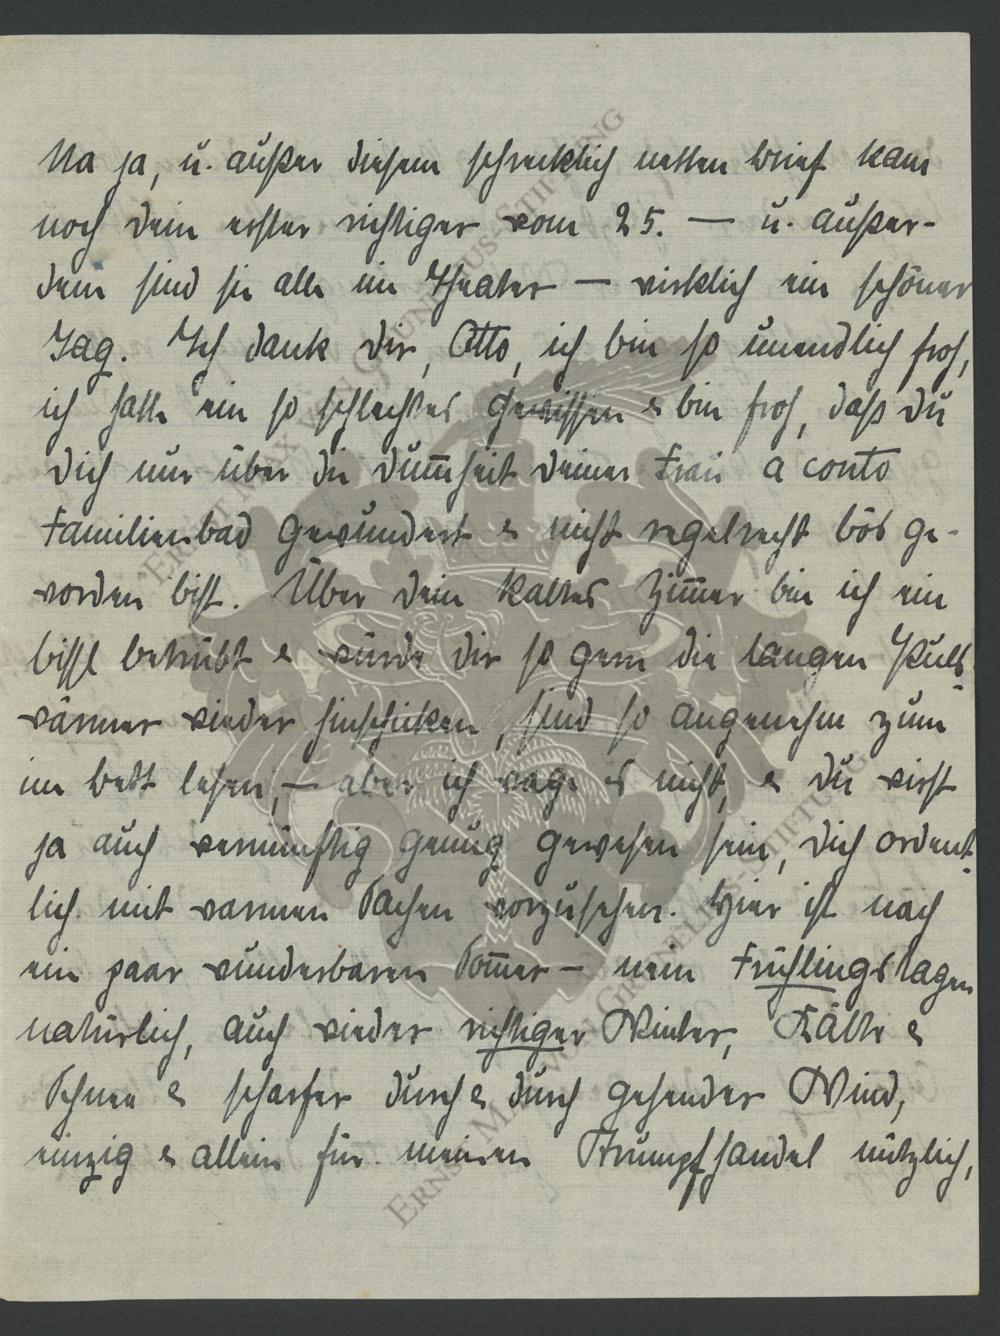 Na ja, u. außer diesem schrecklich netten Brief kam
noch dein erster richtiger vom 25. — u. außer-
dem sind sie alle im Theater — wirklich ein schöner
Tag. Ich dank dir, Otto, ich bin so unendlich froh,
ich hatte ein so schlechtes Gewissen & bin froh, daß du
dich nur über die Dum̅heit deiner Frau a conto
Familienbad gewundert & nicht regelrecht bös ge-
worden bist. Über dein kaltes Zim̅er bin ich ein
bissl betrübt & würde dir so gern die langen Puls-
wärmer wieder hinschicken, sind so angenehm zum
im Bett lesen, — aber ich wage es nicht, & du wirst
ja auch vernünftig genug gewesen sein, dich ordent-
lich mit warmen Sachen vorzusehen. Hier ist nach
ein paar wunderbaren Som̅er — nein Frühlingstagen
natürlich, auch wieder richtiger Winter, Kälte &
Schnee & scharfer durch & durch gehender Wind,
einzig & allein für meinen Strumpfhandel nützlich,
ERNST MAX VON GRUNELIUS-STIFTUNG
ERNST MAX VON GRUNELIUS-STIFTUNG